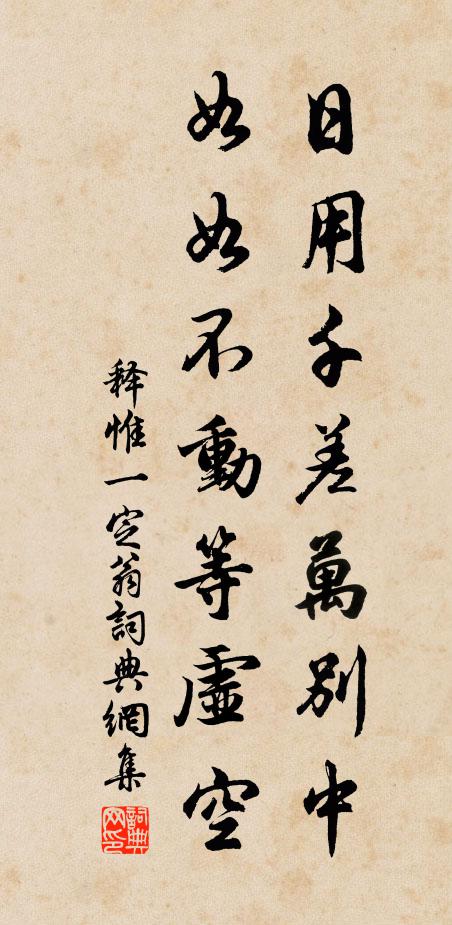 日用千差萬別中
如如不動等虛空
释惟一定翁詞典網集
詞典网印